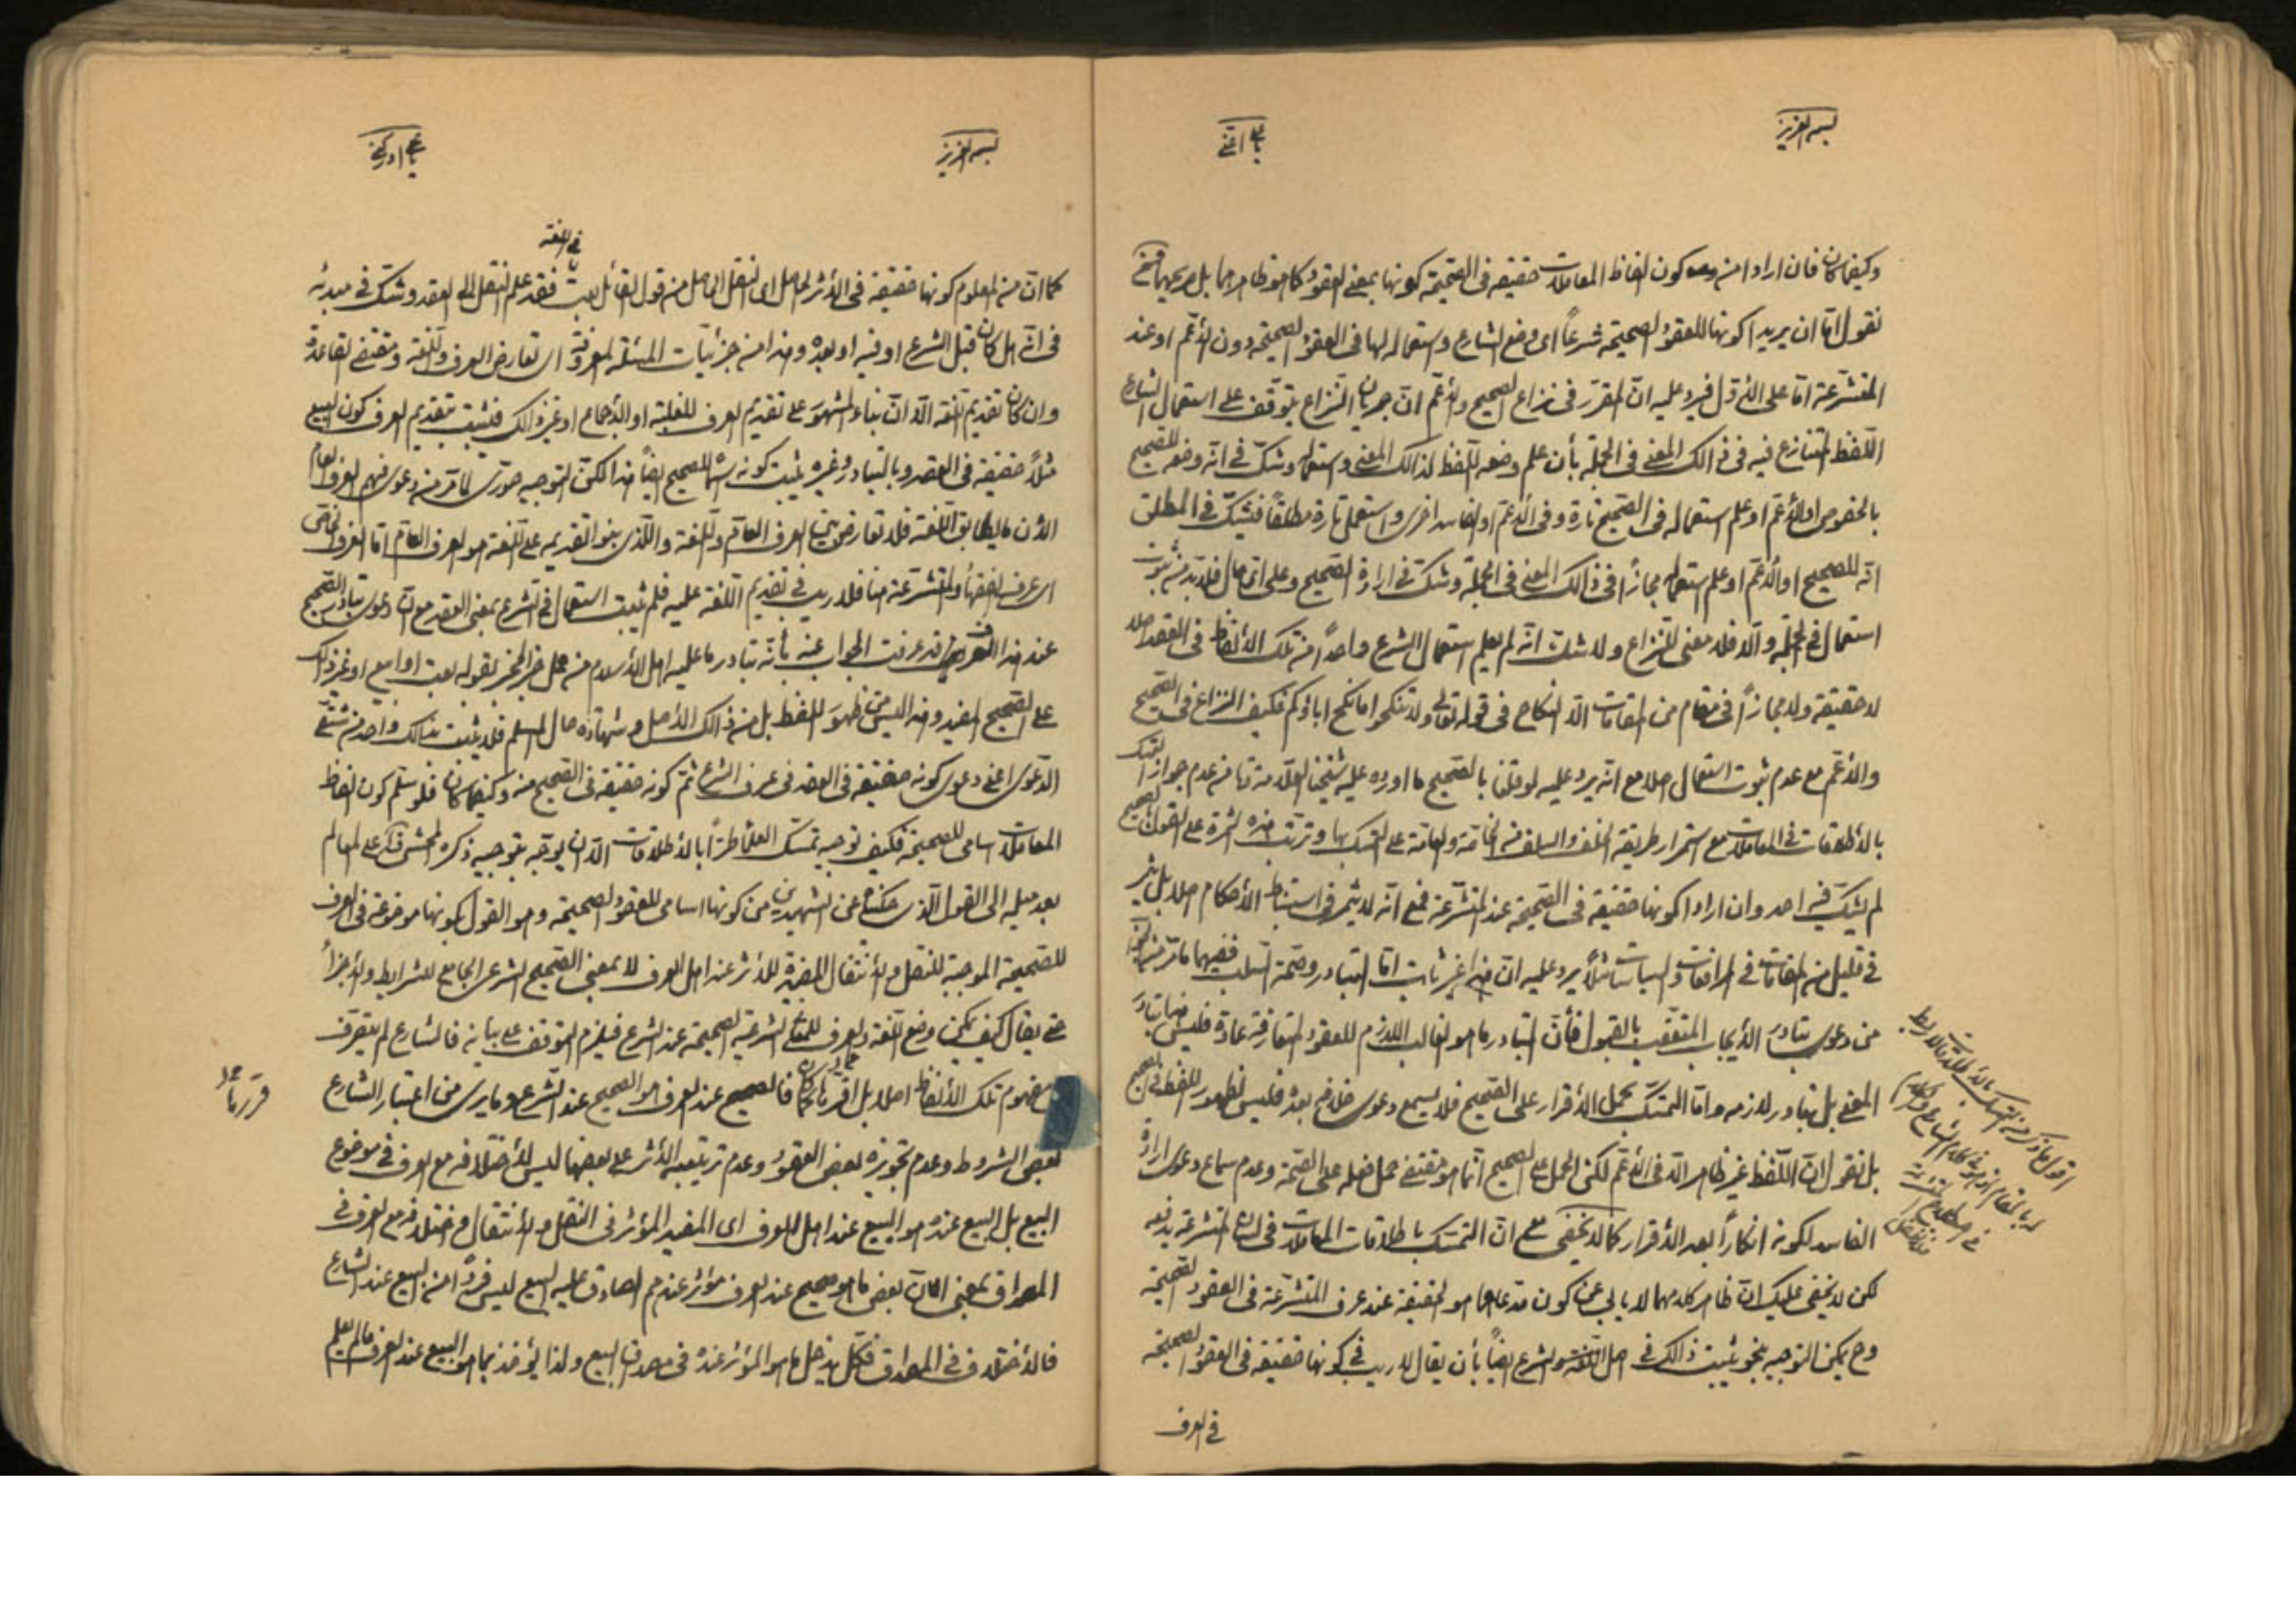 بسم العزيز
يا علي اغثني
وكيفما كان فان ارادا من وجه كون الفاظ المعاملات حقيقة في الصحيحة كونها بمعنى العقود كما هو ظاهرهما بل صريحهما فنحن
نقول امّا ان يريدا كونها للعقود الصحيحة شرعاً اى وضع الشارع واستعماله لها في العقود الصحيحة دون الأعم او عند
المتشرعة امّا على الأول فيرد عليه انّ المقرّر في نزاع الصحيح والأعم انّ جريان النزاع يتوقف على استعمال الشارع
اللّفظ المتنازع فيه في ذالك المعنى في الجملة بأن علم وضعه اللفظ لذالك المعنى واستعماله وشكّ في انّه وضعه للصحيح
بالخصوص او للأعم او علم استعماله في الصحيح تارة وفي الأعم او الفاسد اخرى واستعمل تارة مطلقاً فيشكّ في المطلق
انّه للصحيح او الأعم او علم استعماله مجازاً في ذالك المعنى في الجملة وشكّ في ارادة الصحيح وعلى اىّ حال فلا بدّ من ثبوت
استعمال في الجملة والّا فلا معنى للنزاع ولا شك انّه لم يعلم استعمال الشرع واحداً من تلك الألفاظ في العقد اصلا
لا حقيقة ولا مجازاً في مقام من المقامات الّا النكاح في قوله تعالى ولا تنكحوا ما نكح اباؤكم فكيف النزاع في الصحيح
والأعم مع عدم ثبوت استعمال اصلا مع انّه يرد عليه لو قلنا بالصحيح ما اورده عليه شيخنا العلامة من عدم جواز التمسك
بالأطلاقات في المعاملات مع استمرار طريقة الخلف والسلف من الخاصة والعامة على التمسك بها وترتب هذه الثمرة على القول بالصحيح
لم يشكّ فيه احد وان ارادا كونها حقيقة في الصحيحة عند المتشرعة فمع انّه لا يثمر في استنباط الأحكام اصلا بل يثمر
في قليل من المقامات في المرافعات والسياسات مثلاً يرد عليه انّ هذا غير ثابت امّا التبادر وصحة السلب ففيهما ما مرّ
من دعوى تبادر الأيجاب المتعقّب بالقبول فأنّ التبادر ما هو الغالب اللازم للعقود المتعارفة عادة فليس هنا تبادر
المعنى بل تبادر لازمه وامّا التمسّك بحمل الأقرار على الصحيح فلا يسمع دعوى خلافه بعده فليس لظهور اللفظ في الصحيح
بل نقول انّ اللّفظ غير ظاهر الّا في الأعم لكن الحمل على الصحيح انّما هو مقتضى حمل فعله على الصحّة وعدم سماع دعوى ارادة
الفاسد لكونه انكاراً بعد الأقرار كما لا يخفى مع انّ التمسّك باطلاقات المعاملات في المتشرعة يدفعه
لكن لا يخفى عليك انّ ظاهر كلامهما لا يابى عن كون مدعاهما هو الحقيقة عند عرف المتشرعة في العقود الصحيحة
وح يمكن التوجيه بنحو يثبت ذالك في اصل اللغة والشرع ايضاً بأن يقال لا ريب في كونها حقيقة في العقود الصحيحة
في العرف
بسم العزيز
يا علي ادركني
في اللغة
كما انّ من المعلوم كونها حقيقة في الأثر الحاصل اى النقل الحاصل من قول القائل بعت فقد علم النقل الى العقد وشكّ في مبدئه
في انّه هل كان قبل الشرع او فيه او بعده وهذا من جزئيات المسئلة المعروفة اى تعارض العرف واللغة ومقتضى القاعدة
وان كان تقديم اللغة الّا انّ بناء المشهور على تقديم العرف للغلبة او الأجماع او غير ذالك فثبت بتقديم العرف كون البيع
مثلاً حقيقة في العقد وبالتبادر وغيره يثبت كونه للصحيح ايضاً هذا لكن التوجيه صورى لما مرّ من دعوى فهم العرف العام
الأن ما يطابق اللّغة فلا تعارض بين العرف العام واللغة والّذي بنوا تقديمه على اللّغة هو العرف العام امّا العرف الخاص
اى عرف الفقهاء والمتشرعة هنا فلا ريب في تقديم اللّغة عليه فلم يثبت استعمال في الشرع بمعنى العقد مع انّ دعوى تبادر الصحيح
عند هذا العرف قد عرفت الجواب عنه بأنّه تبادر ما عليه اهل الأسلام من حمل خبر المخبر بقوله بعت او ابيع او غير ذالك
على الصحيح المفيد وهذا ليس من ظهور اللفظ بل من ذالك الأصل وشهادة حال المسلم فلا يثبت بذالك واحد من شقّي
الدّعوى اعنى دعوى كونه حقيقة في العقد في عرف الشرع ثمّ كونه حقيقة في الصحيح منه وكيفما كان فلو سلّم كون الفاظ
المعاملات اسامى للصحيحة فكيف توجيه تمسّك العلماء طرّاً بالأطلاقات الّا ان يوجّه بتوجيه ذكره المحشى على المعالم
بعد ميله الى القول الّذي حكيناه عن الشهيدين من كونها اسامى للعقود الصحيحة وهو القول بكونها موضوعة في العرف
للصحيحة الموجبة للنقل والأنتقال المفيدة للأثر عند اهل العرف لا بمعنى الصحيح الشرعى الجامع للشرايط والأجزاء
حتى يقال كيف يمكن وضع اللغة والعرف للمعنى الشرعية الصحيحة عند الشرع فيلزم التوقف على بيانه فالشارع لم يتصرف
مفهوم تلك الألفاظ اصلا بل اقرّها كما كان فالصحيح عند العرف هو الصحيح عند الشرع وما يرى من اعتبار الشارع
بعض الشروط وعدم تجويزه بعض العقود وعدم ترتيبه الأثر على بعضها ليس لأختلافه مع العرف في موضوع
البيع بل البيع عنده هو البيع عند اهل العرف اى المفيد المؤثر في النقل والأنتقال واختلافه مع العرف في
المصداق بمعنى انّ بعض ما هو صحيح عند العرف مؤثر عندهم الصادق عليه البيع ليس فرداً من البيع عند الشارع
فالأختلاف في المصداق فكل يدخل ما هو المؤثر عنده في مصداق البيع ولذا يؤخذ بما هو البيع عند العرف ما لم يعلم